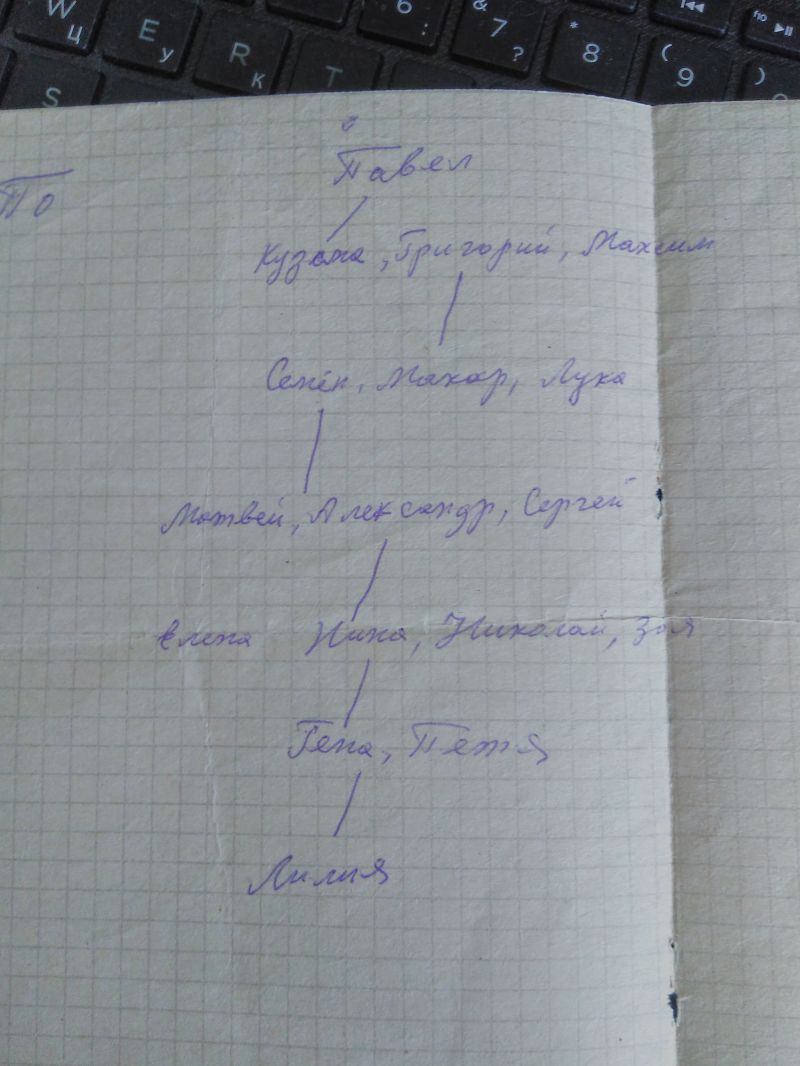 W Ц E У R К T 6 : & 7 ? * 8 ( 9 )
S
Павел
По
Кузьма, Григорий, Максим
Семён, Макар, Лука
Матвей, Александр, Сергей
Елена Нина, Николай, Зоя
Гена, Петя
Лилия